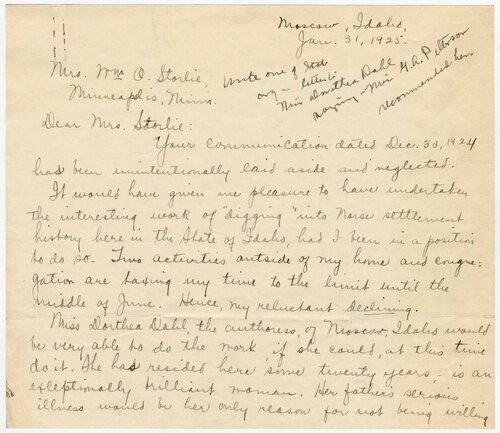 Moscow, Idaho,
Jan. 31, 1925.
Write one of Std
org— letters to
Miss Dorothea Dahl
saying— Mrs H. A. Petterson
recommended her.
Mrs. Wm O. Storlie,
Minneapolis, Minn.
Dear Mrs. Storlie:
Your communication dated Dec. 30, 1924
had been unintentionally laid aside and neglected.
It would have given me pleasure to have undertaken
the interesting work of "digging" into Norse settlement
history here in the State of Idaho, had I been in a position
to do so. Two activities outside of my home and congre-
gation are taxing my time to the limit until the
middle of June. Hence, my reluctant declining.
Miss Dorthea Dahl, the authoress, of Moscow, Idaho would
be very able to do the work, if she could, at this time
do it. She has resided here some twenty years,— is an
exceptionally brilliant woman. Her father's serious
illness would be her only reason for not being willing